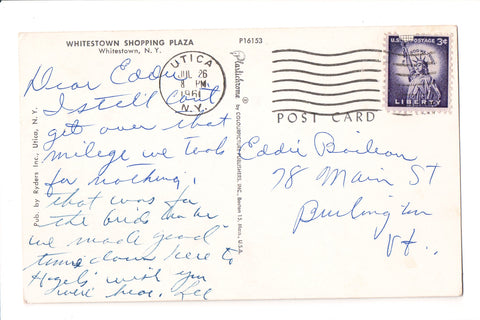 WHITESTOWN SHOPPING PLAZA
Whitestown, N. Y.
P16153
Pub. by Ryders Inc., Utica, N. Y.
Plastichrome ® by COLOURPICTURE PUBLISHERS, INC., Boston 15, Mass., U.S.A.
UTICA
JUL 26
PM
1961
N.Y.
U.S. POSTAGE 3¢
LIBERTY
POST CARD
Dear Eddie
I still cant
get over that
milege we took
for nothing,
that was for
the birds
we made good
time down here to
wish you
were here.
Eddie
78 Main St
Burlington
Vt.